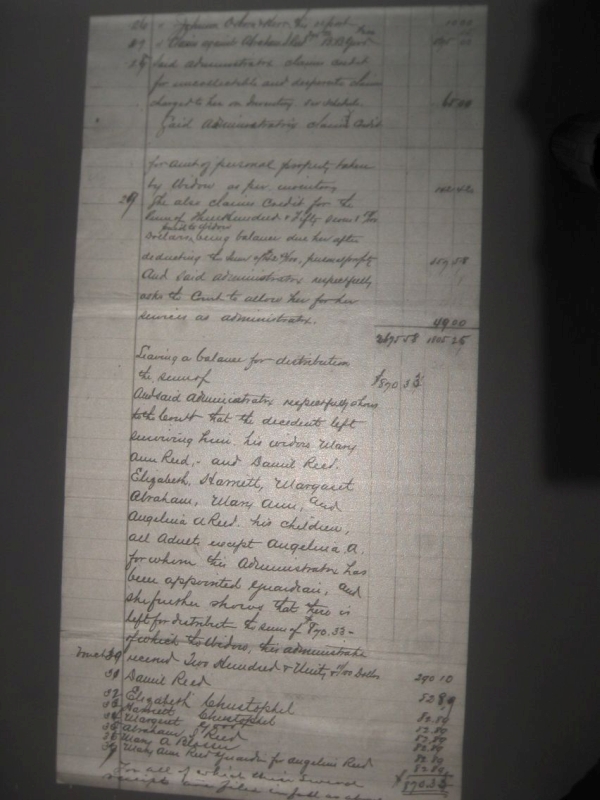 26 " Johnson
27 " Claim against Abraham Reed
28 Said administratrix claims credit
for uncollectable and desperate claims
charged to her on Inventory see schedule. 65 00
Said Administratrix claims Credit
for amt of personal property taken
by Widow as per inventory 142 42
29 She also claims Credit for the
Sum of Three Hundred & Fifty Seven &
paid to Widow
Dollars, being balance due her after
deducting the Sum of personal property 357 58
And said administratrix respectfully
asks the Court to allow her for her
services as administratrix. 49 00
2675 58 1805 25
Leaving a balance for distribution
the sum of $870 33
And said Administratrix respectfully shows
to the Court that the decedent left
surviving him, his widow Mary
Ann Reed, and Daniel Reed,
Elizabeth, Harriett, Margaret
Abraham, Mary Ann, and
Angelina A Reed. his children,
all Adults except Angelina A.
for whom this Administratrix has
been appointed Guardian, and
she further shows that there is
left for distribut the sum of $870.33-
of which the Widow, this administratrix
received Two Hundred & Ninty & 10/100 Dollars 290 10
31 Daniel Reed 82 89
32 Elizabeth Christophel 82 89
33 Harriett Christophel 82 89
34 Margaret 82 89
35 Abraham S Reed 82 89
36 Mary A Blosser 82 89
37 Mary Ann Reed Guardian for Angelina Reed 82 89
$870.33
For all of which
receipts are filed in full as above